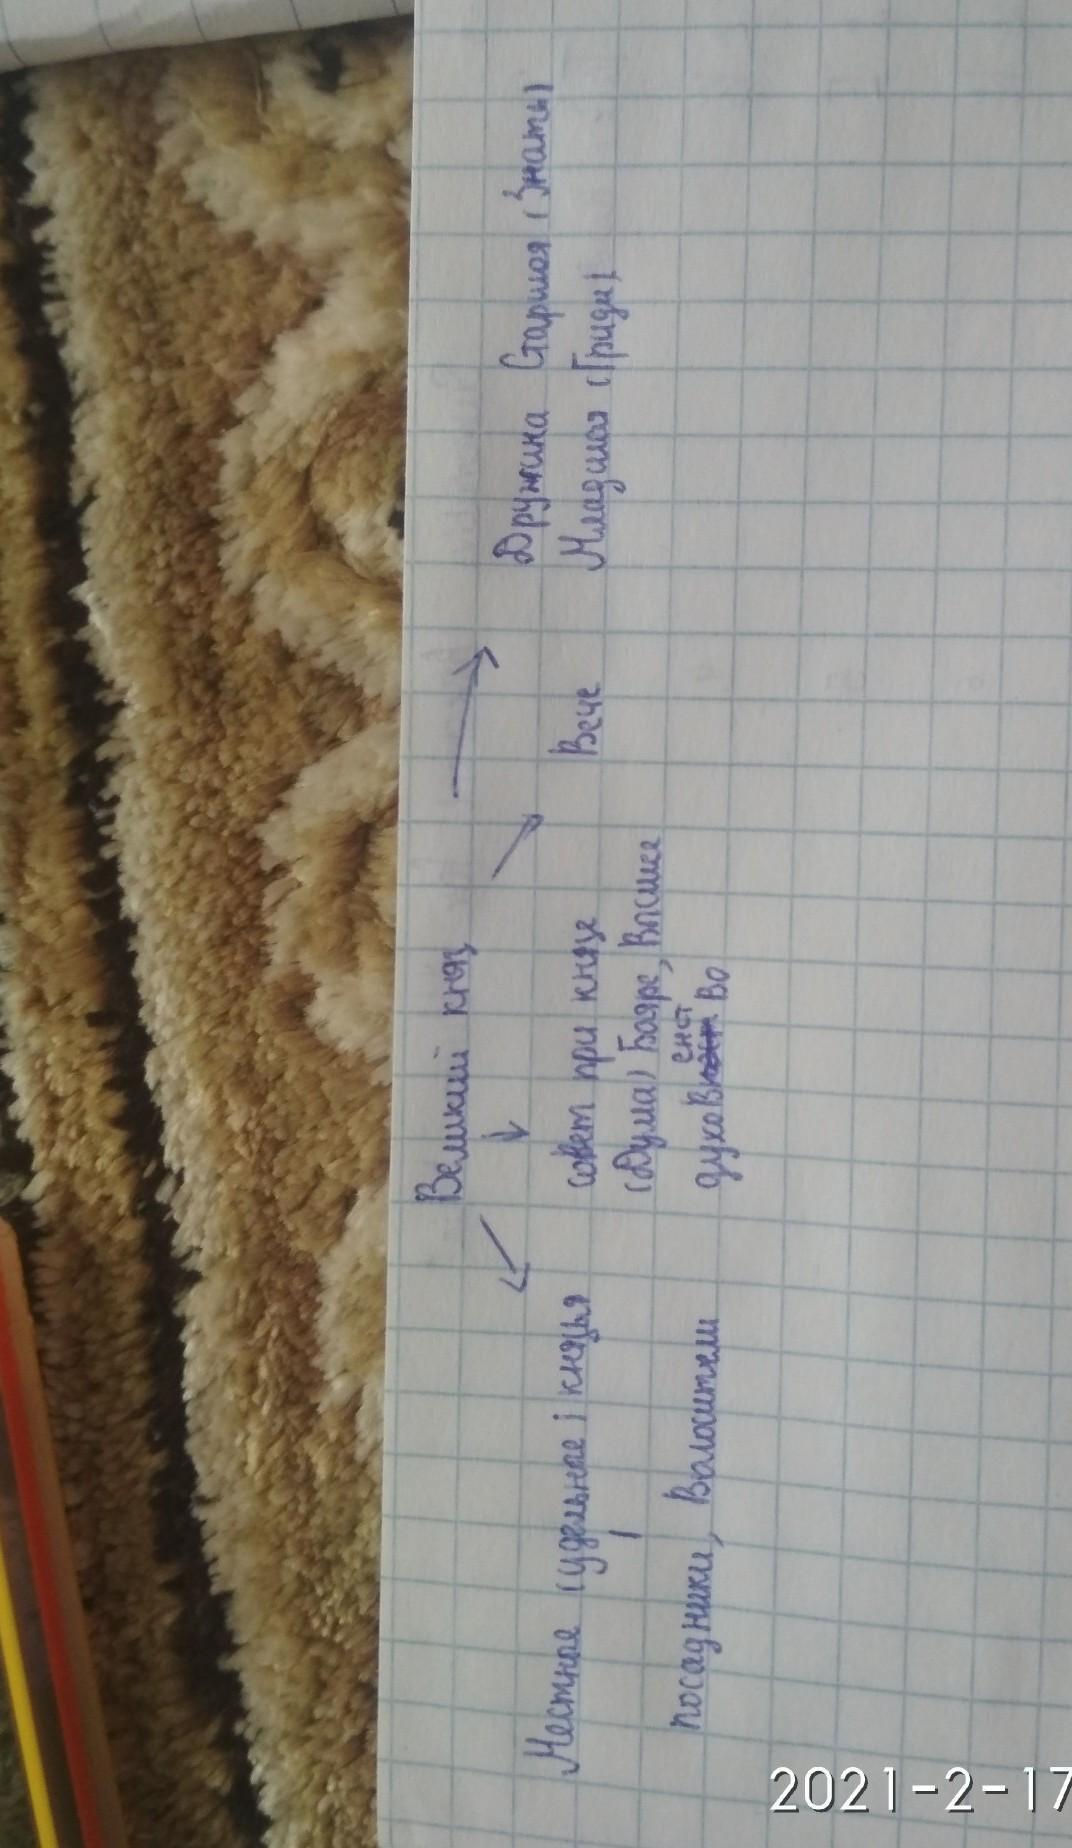 Великий княз
Местное (удельное) князья
посадники, Волостели
совет при князе
(Дума) Бояре, Высшее
духовенство
Вече
Дружина Старшая (Знать)
Младшая (Гриди)
2021-2-17